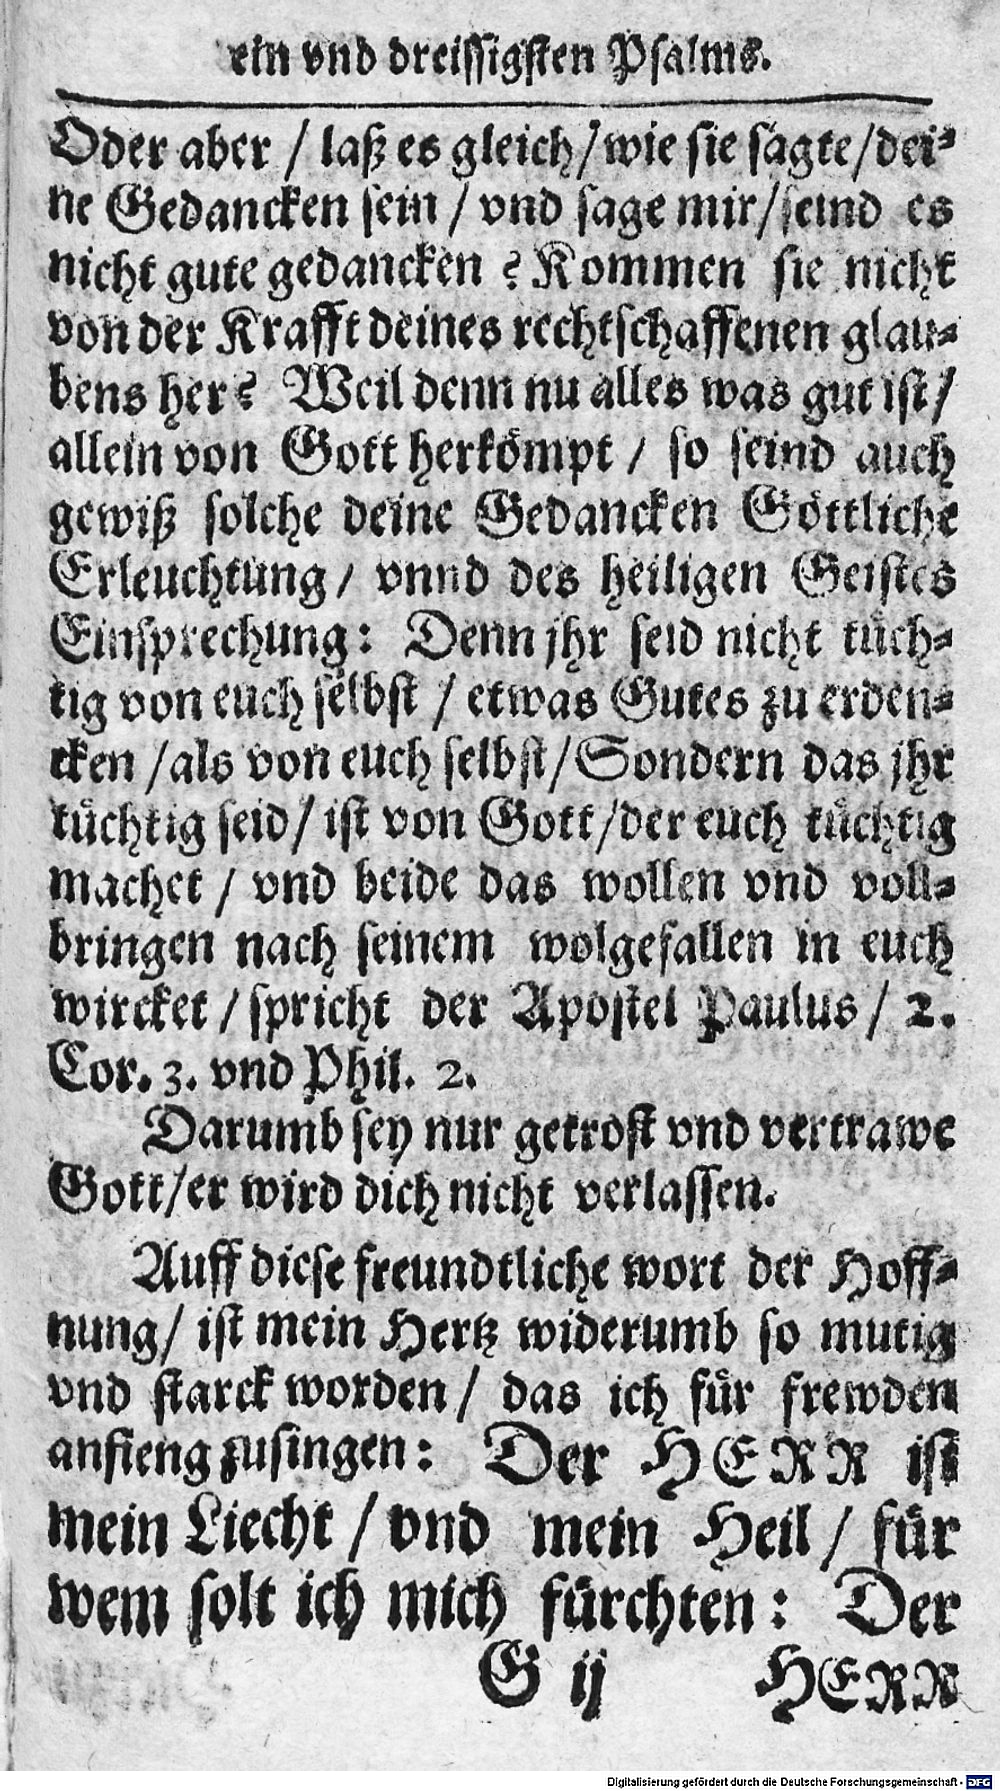 ein vnd dreissigsten Psalms.
Oder aber / laß es gleich / wie sie sagte / dei⸗
ne Gedancken sein / vnd sage mir / seind es
nicht gute gedancken ? Kommen sie nicht
von der Krafft deines rechtschaffenen glau⸗
bens her? Weil denn nu alles was gut ist /
allein von Gott herkömpt / so seind auch
gewiß solche deine Gedancken Göttliche
Erleuchtung / vnnd des heiligen Geistes
Einsprechung: Denn jhr seid nicht tüch⸗
tig von euch selbst / etwas Gutes zu erden⸗
cken / als von euch selbst / Sondern das jhr
tüchtig seid / ist von Gott / der euch tüchtig
machet / vnd beide das wollen vnd voll⸗
bringen nach seinem wolgefallen in euch
wircket / spricht der Apostel Paulus / 2.
Cor. 3. vnd Phil. 2.
Darumb sey nur getrost vnd vertrawe
Gott / er wird dich nicht verlassen.
Auff diese freundtliche wort der Hoff⸗
nung / ist mein Hertz widerumb so mutig
vnd starck worden / das ich für frewden
anfieng zusingen: Der HERR ist
mein Liecht / vnd mein Heil / für
wem solt ich mich fürchten: Der
G ij HERR
Digitalisierung gefördert durch die Deutsche Forschungsgemeinschaft - DFG